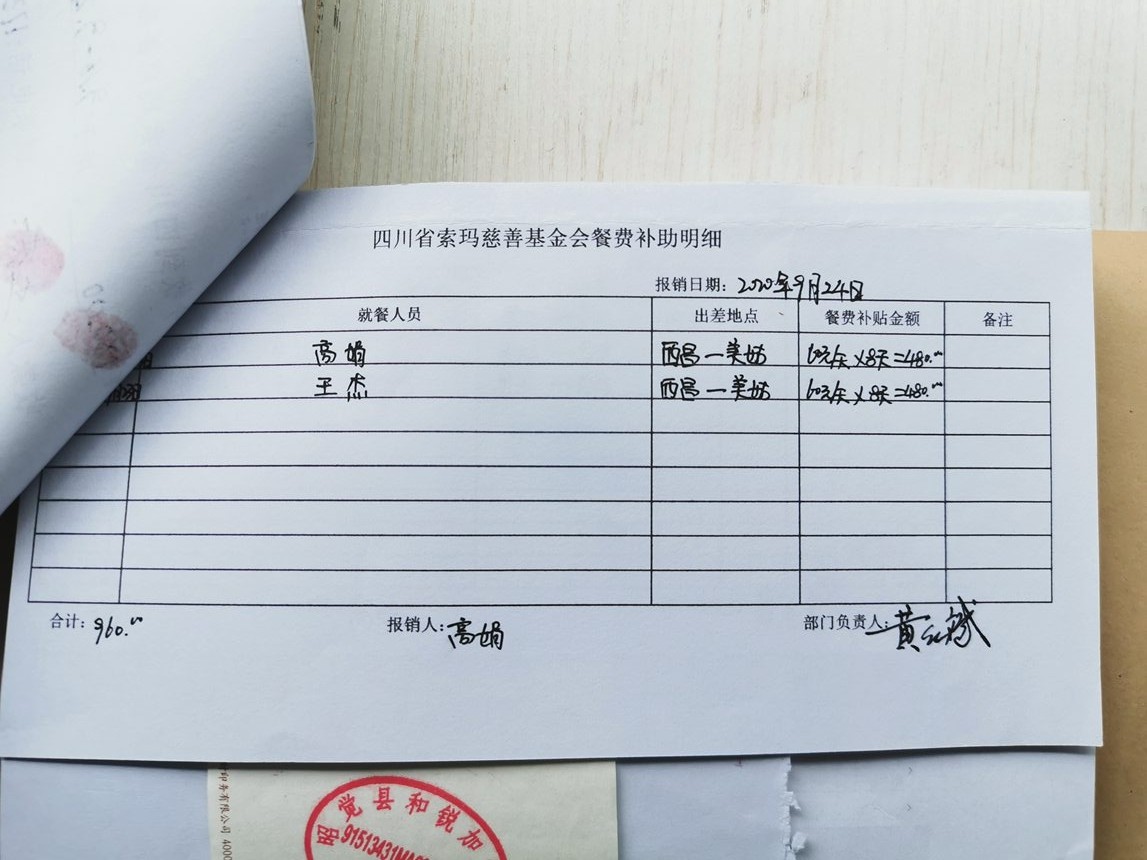 四川省索玛慈善基金会餐费补助明细
报销日期：2020年9月24日
就餐人员 出差地点 餐费补贴金额 备注
高娟 西昌—美姑 60元/天×8天=480.00
王杰 西昌—美姑 60元/天×8天=480.00
合计：960.00 报销人：高娟 部门负责人：黄红斌
昭觉县和锐加
91513431MA
印务有限公司 400